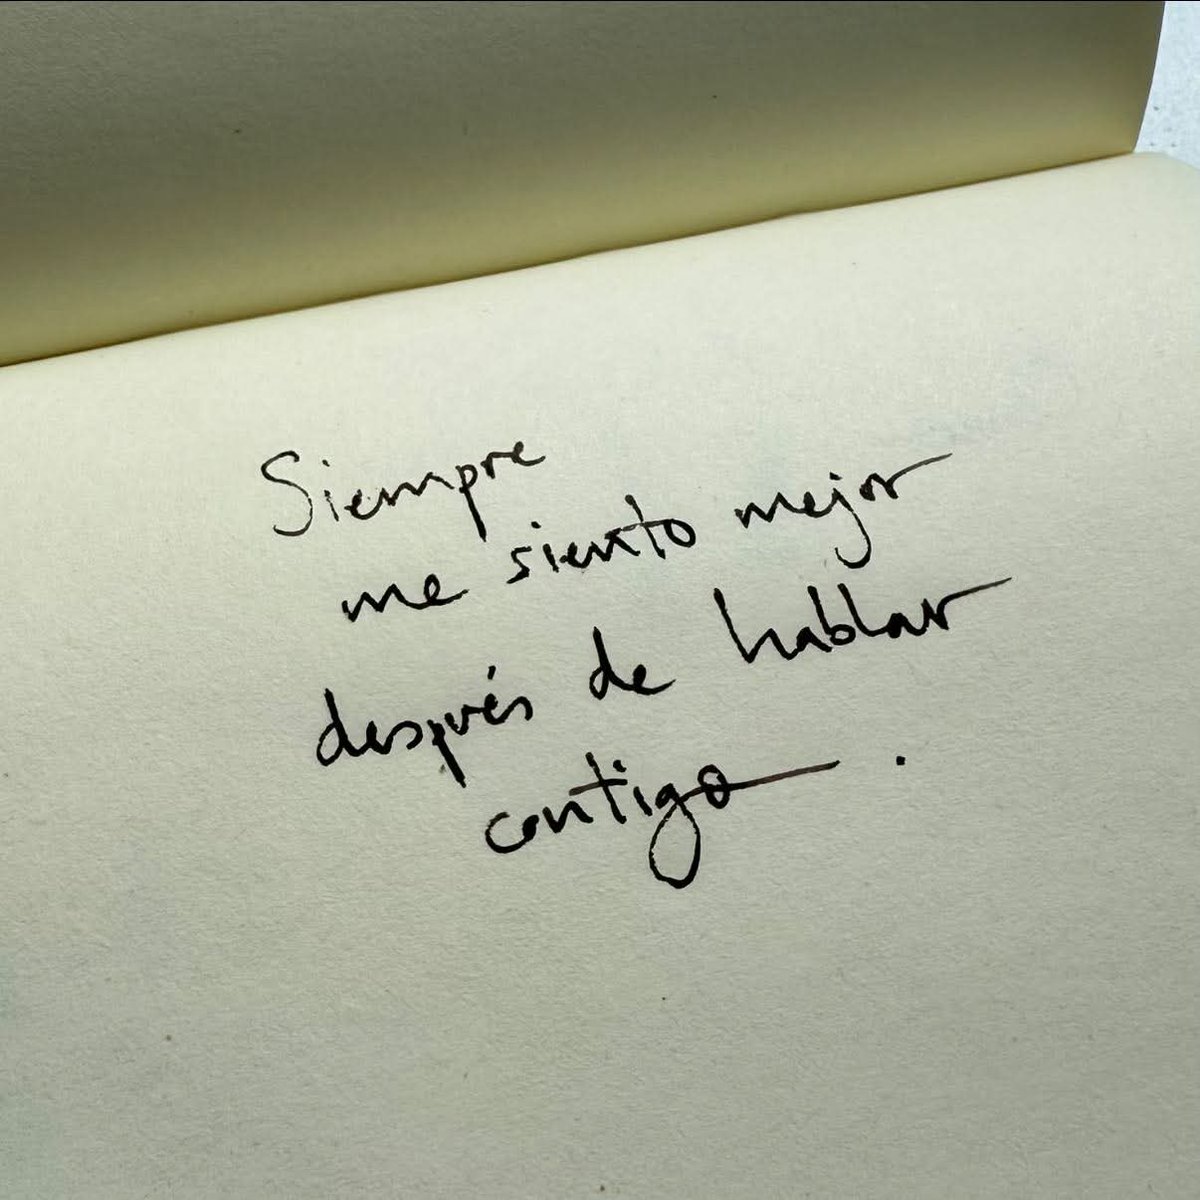 Siempre
me siento mejor
después de hablar
contigo.